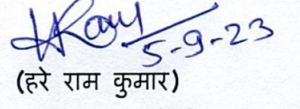 5-9-23
(हरे राम कुमार)